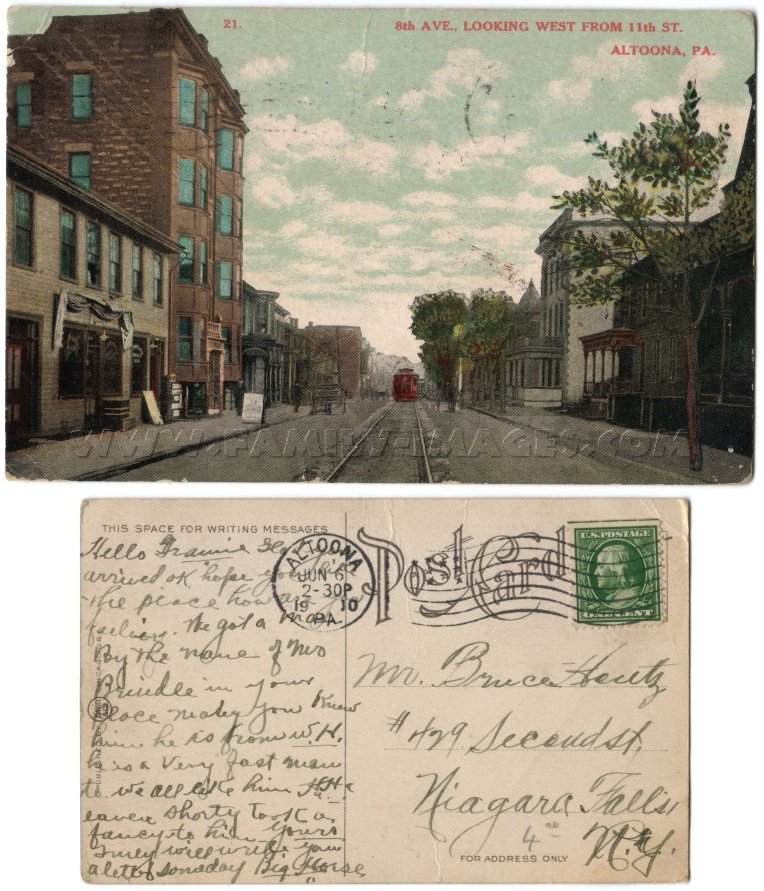 21.
8th AVE., LOOKING WEST FROM 11th ST.
ALTOONA, PA.
WWW.FAMILY-IMAGES.COM
THIS SPACE FOR WRITING MESSAGES
Post Card
ALTOONA
JUN 6
2-30P
19 10
PA.
U.S. POSTAGE
Hello
arrived ok hope you
the place how are you
We got a man
By the name of Mr
Brindle in your
place maby you Know
him he is from W.H.
he is a Very fast man
to we all like him
eaven Shorty took a
fancy to him Yours
Truly will write you
a letter someday Big Horse
Mr. Bruce Hentz
#429 Second st.
Niagara Falls
N.Y.
4
FOR ADDRESS ONLY